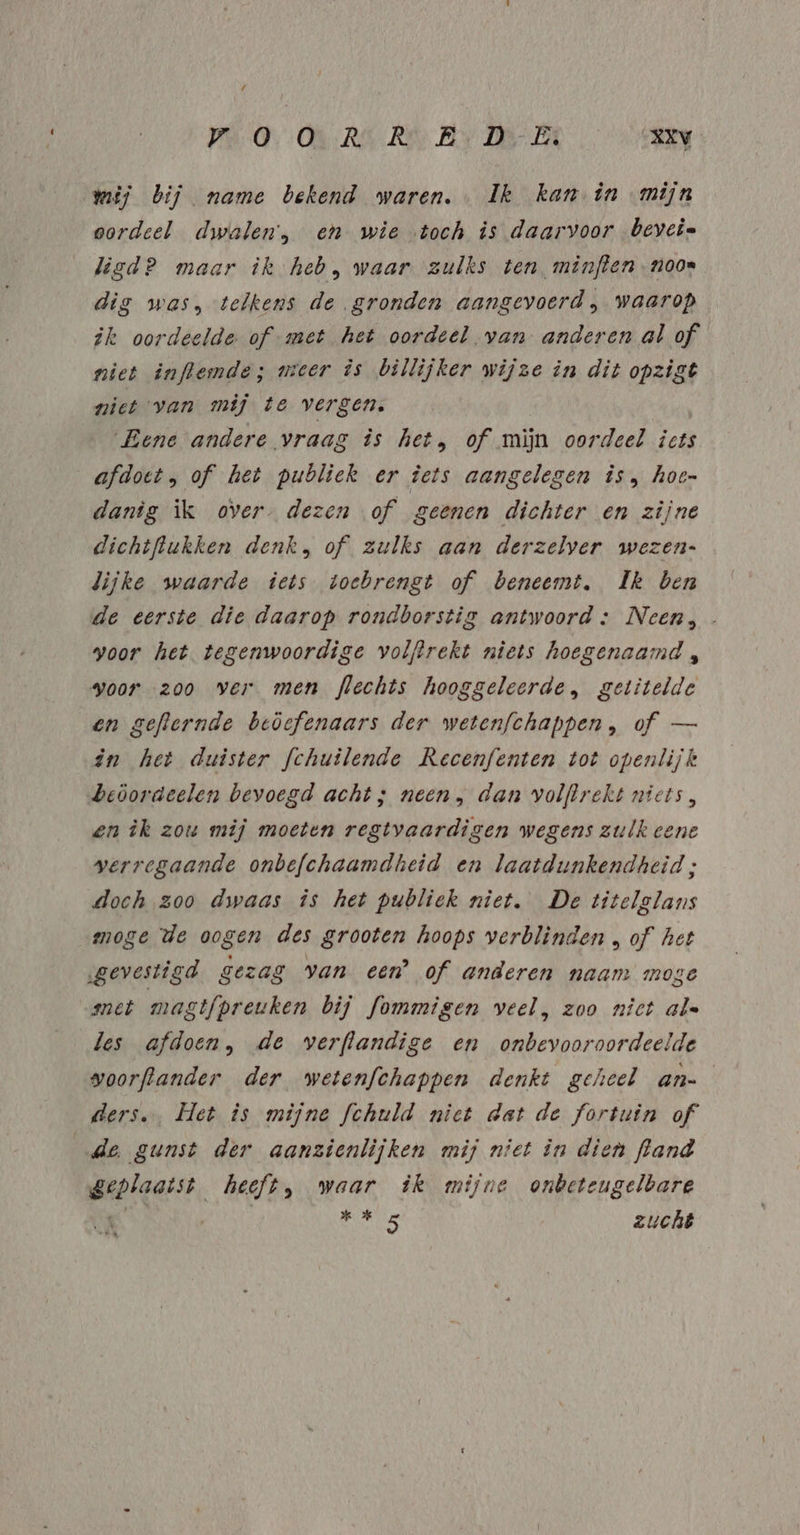 VOORREDE. XXV
mij bij name bekend waren. Ik kan in mijn
oordeel dwalen, en wie toch is daarvoor bevei-
ligd? maar ik heb, waar zulks ten minſten noo-
dig was, telkens de gronden aangevoerd, waarop
ik oordeelde of met het oordeel van anderen al of
niet inſtemde; meer is billijker wijze in dit opzigt
niet van mij te vergen.
Eene andere vraag is het, of mijn oordeel iets
afdoet, of het publiek er iets aangelegen is, hoe-
danig ik over dezen of geenen dichter en zijne
dichtſtukken denk, of zulks aan derzelver wezen-
lijke waarde iets toebrengt of beneemt. Ik ben
de eerste die daarop rondborstig antwoord: Neen,
voor het tegenwoordige volſtrekt niets hoegenaamd,
voor zoo ver men ſlechts hooggeleerde, getitelde
en geſternde beöefenaars der wetenſchappen, of —
in het duister ſchuilende Recenſenten tot openlijk
beöordeelen bevoegd acht; neen, dan volſtrekt niets,
en ik zou mij moeten regtvaardigen wegens zulk eene
verregaande onbeſchaamdheid en laatdunkendheid;
doch zoo dwaas is het publiek niet. De titelglans
moge de oogen des grooten hoops verblinden, of het
gevestigd gezag van een' of anderen naam moge
met magtſpreuken bij ſommigen veel, zoo niet al-
les afdoen, de verſtandige en onbevooroordeelde
voorſtander der wetenſchappen denkt geheel an-
ders. Het is mijne ſchuld niet dat de fortuin of
de gunst der aanzienlijken mij niet in dien ſtand
geplaatst heeft, waar ik mijne onbeteugelbare
** 5 zucht